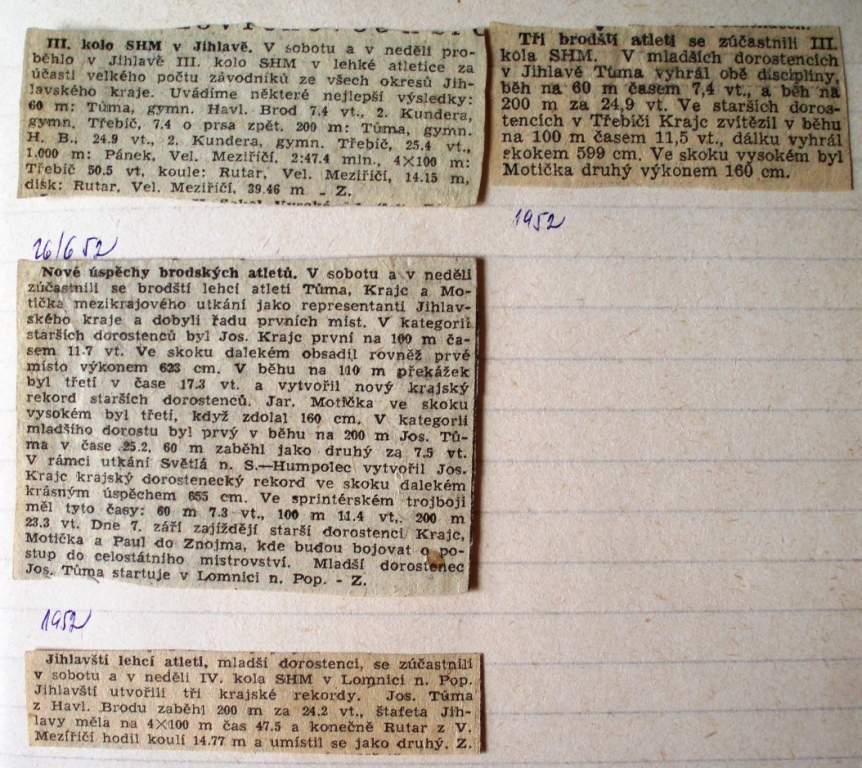 III. kolo SHM v Jihlavě. V sobotu a v neděli pro-
běhlo v Jihlavě III. kolo SHM v lehké atletice za
účasti velkého počtu závodníků ze všech okresů Jih-
lavského kraje. Uvádíme některé nejlepší výsledky:
60 m: Tůma, gymn. Havl. Brod 7.4 vt., 2. Kundera,
gymn. Třebíč, 7.4 o prsa zpět. 200 m: Tůma, gymn.
H. B., 24.9 vt., 2. Kundera, gymn. Třebíč, 25.4 vt.,
1.000 m: Pánek, Vel. Meziříčí, 2:47.4 min., 4×100 m:
Třebíč 50.5 vt, koule: Rutar, Vel. Meziříčí, 14.15 m,
disk: Rutar, Vel. Meziříčí, 39.46 m - Z.
26/6 52
Tři brodští atleti se zúčastnili III.
kola SHM. V mladších dorostencích
v Jihlavě Tůma vyhrál obě disciplíny,
běh na 60 m časem 7,4 vt., a běh na
200 m za 24,9 vt. Ve starších doros-
tencích v Třebíči Krajc zvítězil v běhu
na 100 m časem 11,5 vt., dálku vyhrál
skokem 599 cm. Ve skoku vysokém byl
Motička druhý výkonem 160 cm.
1952
Nové úspěchy brodských atletů. V sobotu a v neděli
zúčastnili se brodští lehcí atleti Tůma, Krajc a Mo-
tička mezikrajového utkání jako representanti Jihlav-
ského kraje a dobyli řadu prvních míst. V kategorii
starších dorostenců byl Jos. Krajc první na 100 m ča-
sem 11.7 vt. Ve skoku dalekém obsadil rovněž prvé
místo výkonem 623 cm. V běhu na 110 m překážek
byl třetí v čase 17.3 vt. a vytvořil nový krajský
rekord starších dorostenců. Jar. Motička ve skoku
vysokém byl třetí, když zdolal 160 cm. V kategorii
mladšího dorostu byl prvý v běhu na 200 m Jos. Tů-
ma v čase 25.2, 60 m zaběhl jako druhý za 7.5 vt.
V rámci utkání Světlá n. S.—Humpolec vytvořil Jos.
Krajc krajský dorostenecký rekord ve skoku dalekém
krásným úspěchem 655 cm. Ve sprintérském trojboji
měl tyto časy: 60 m 7.3 vt., 100 m 11.4 vt., 200 m
23.3 vt. Dne 7. září zajíždějí starší dorostenci Krajc,
Motička a Paul do Znojma, kde budou bojovat o po-
stup do celostátního mistrovství. Mladší dorostenec
Jos. Tůma startuje v Lomnici n. Pop. - Z.
1952
Jihlavští lehcí atleti, mladší dorostenci, se zúčastnili
v sobotu a v neděli IV. kola SHM v Lomnici n. Pop.
Jihlavští utvořili tři krajské rekordy. Jos. Tůma
z Havl. Brodu zaběhl 200 m za 24.2 vt., štafeta Jih-
lavy měla na 4×100 m čas 47.5 a konečně Rutar z V.
Meziříčí hodil koulí 14.77 m a umístil se jako druhý. Z.